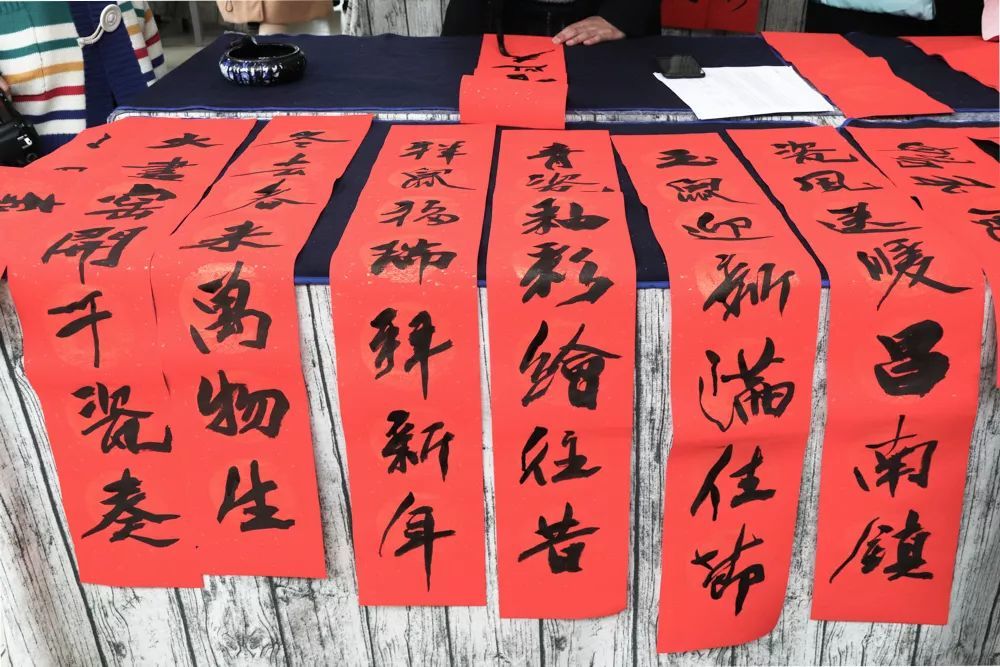 瓷風送暖昌南鎮
玉鼠迎新滿佳節
青瓷釉彩繪往昔
祥鼠福瑞拜新年
冬去春来萬物生
火窑開千瓷奏